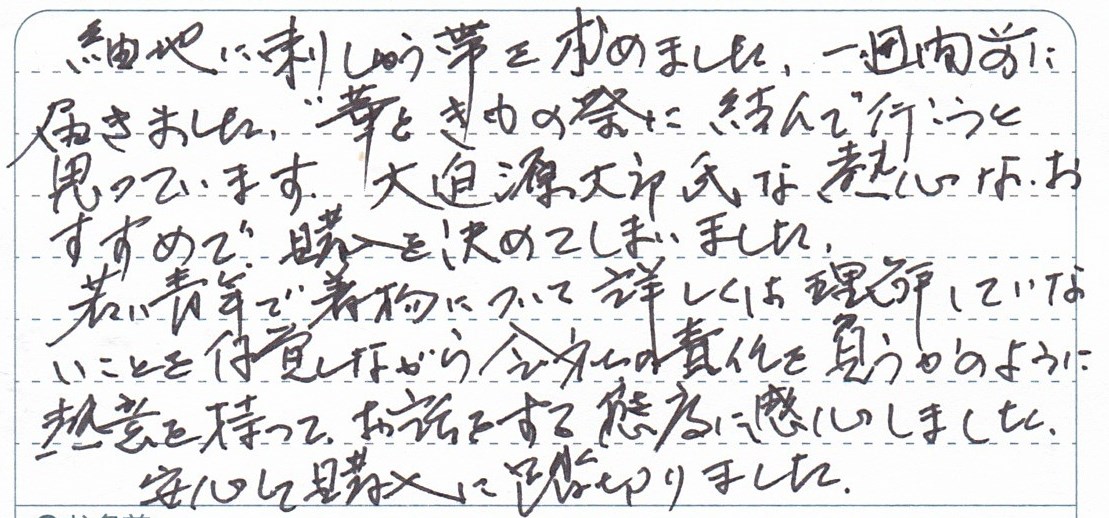 紬地に刺しゅう帯を求めました、一週間前に
届きました、"華ときめの祭に結んで行こうと
思っています。大迫源太郎氏な熱心な、お
すすめで、購入を決めてしまいました、
若い青年で着物について詳しくは理解していな
いことを自覚しながら会社の責任を負うかのように
熱意を持って、お話をする態度に感心しました、
安心して購入に踏切りました。